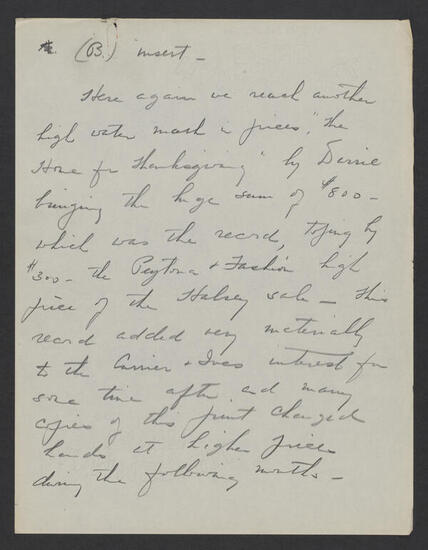 (B.) insert -
Here again we reach another
high water mark in prices, "The
Home for Thanksgiving" by Durrie
bringing the huge sum of $800 -
which was the record, toping by
$300 - the Peytona + Fashion high
price of the Halsey sale - This
record added very materially
to the Currier + Ives interest for
some time after and many
copies of this print changed
hands at higher prices
during the following months -